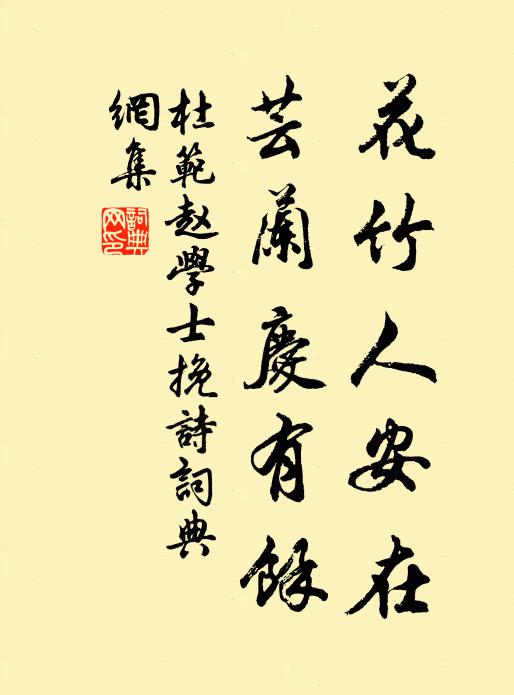 花竹人安在
芸蘭慶有餘
杜範趙學士挽詩詞典
網集
詞典
网印